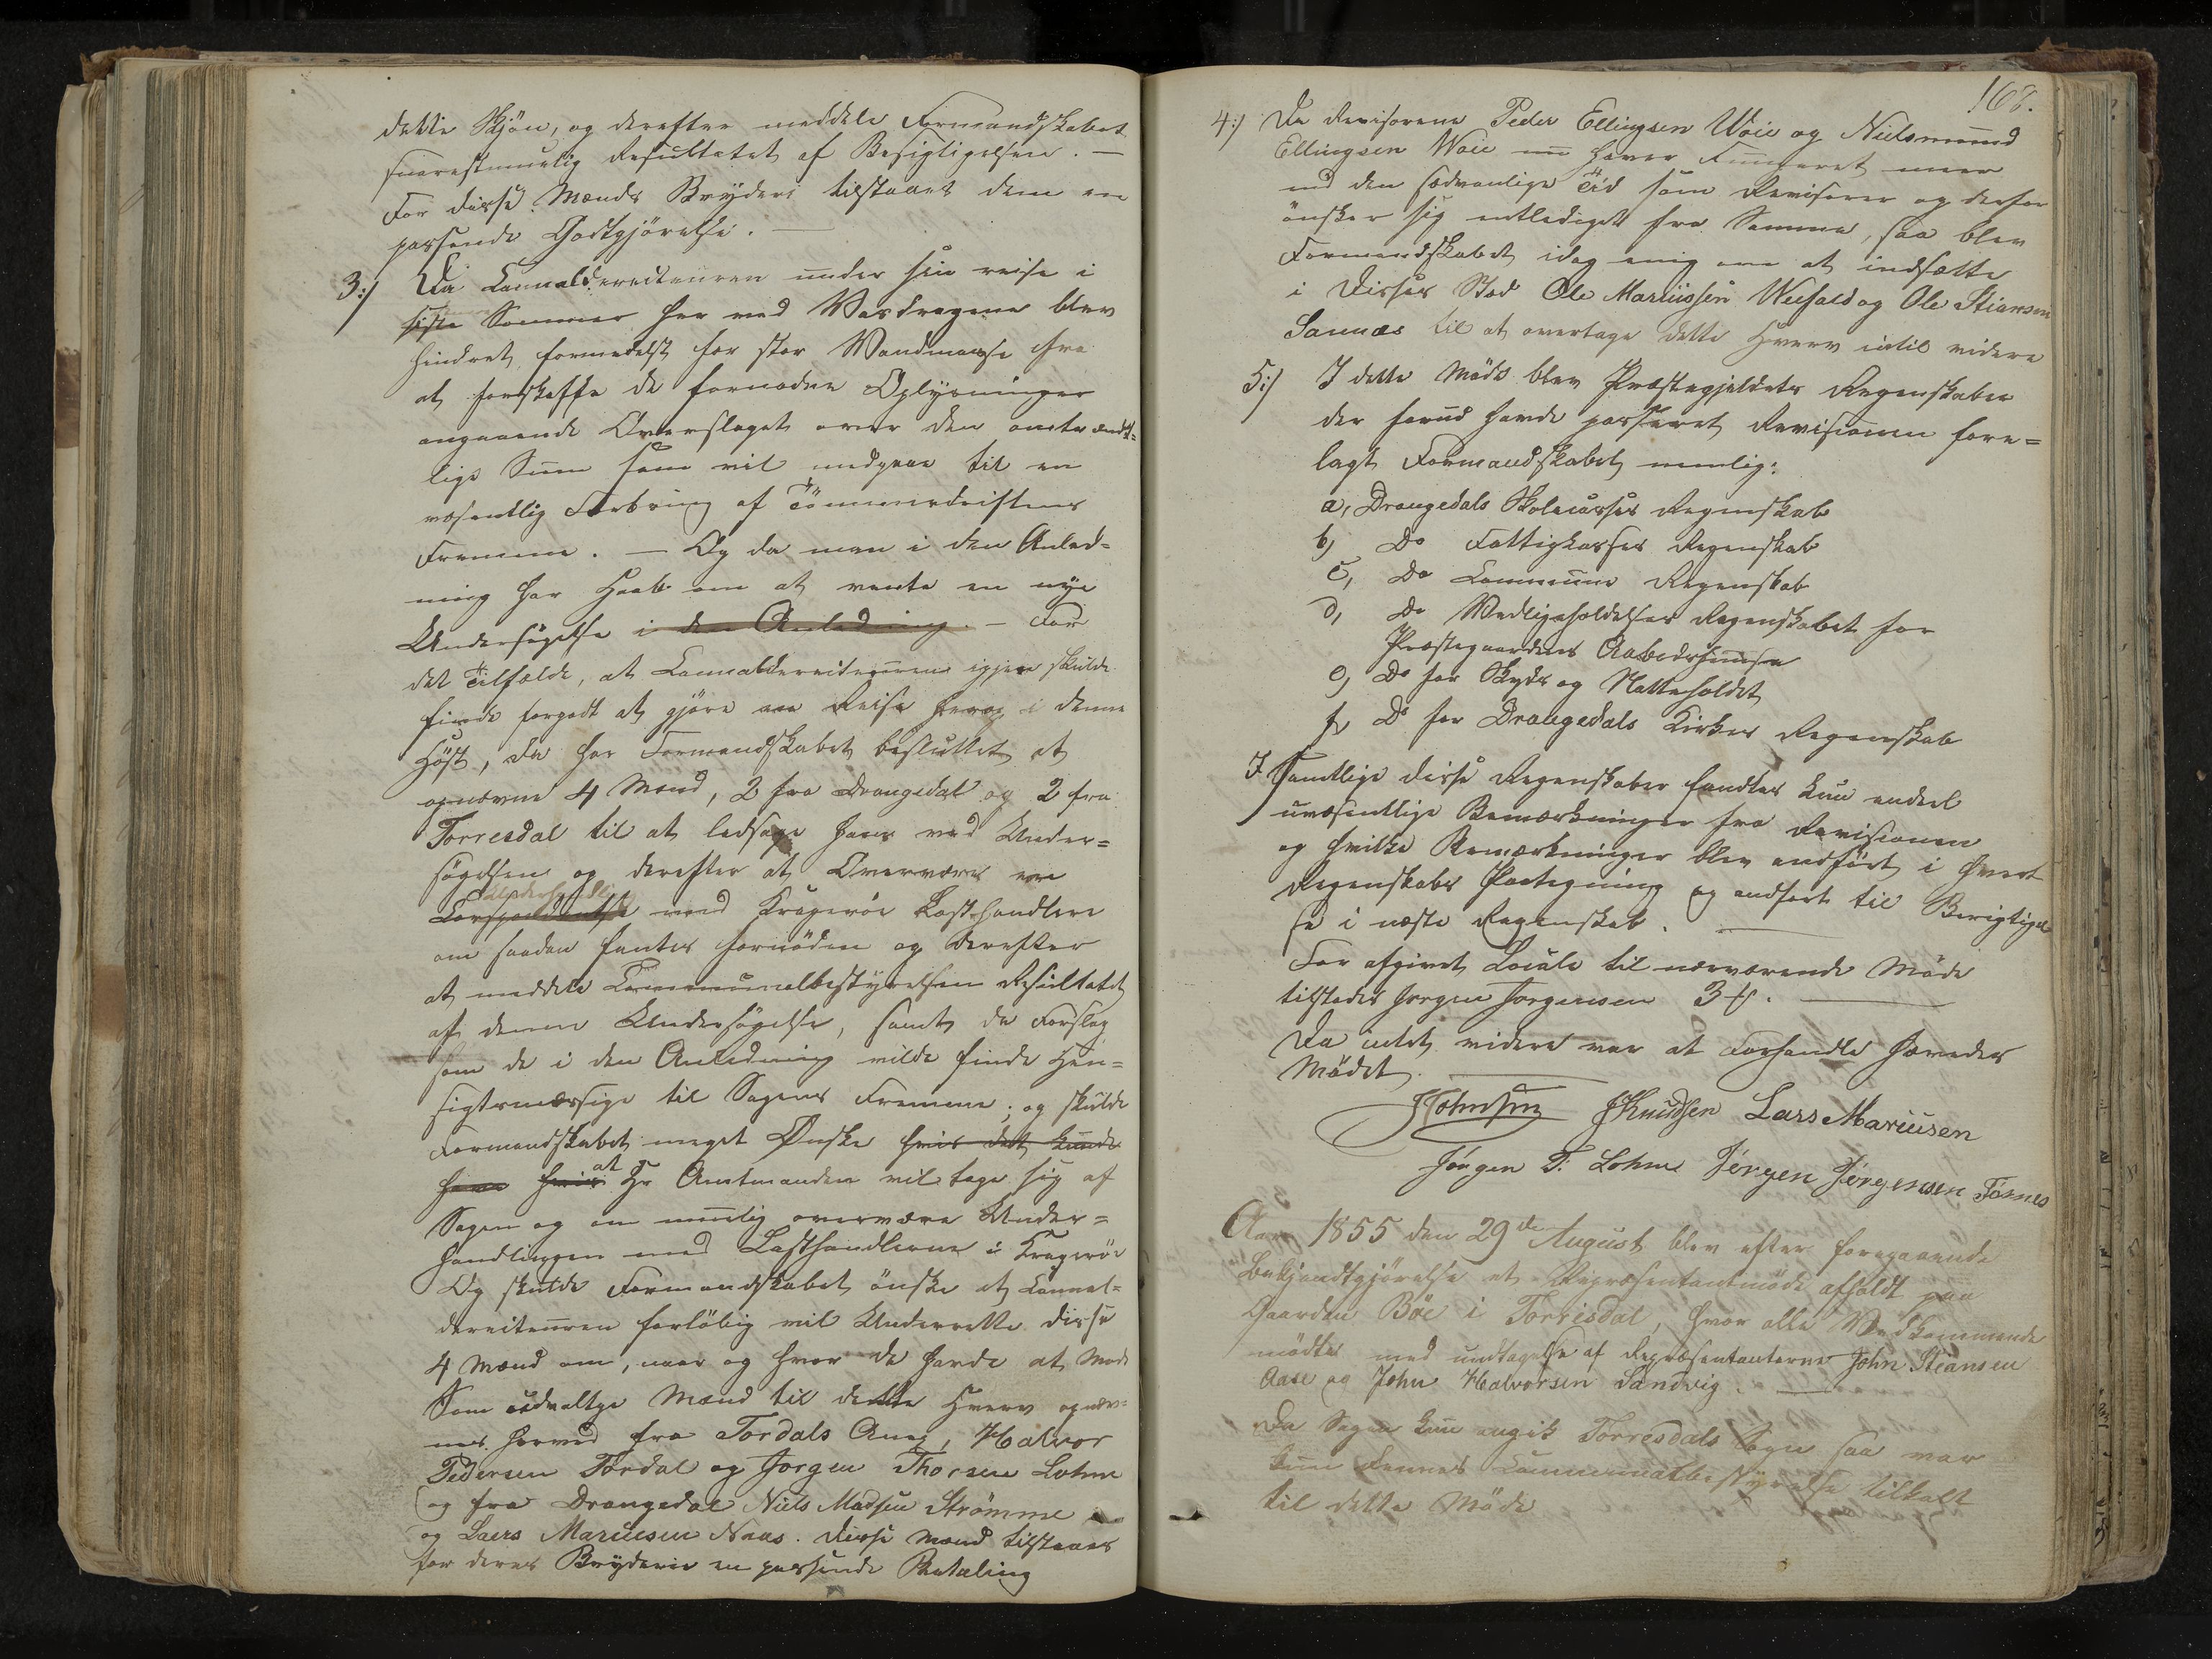 dette Skjøn, og derefter meddele Formandskabet
snarestmuelig Resultatet af Besigtigelsen. —
For disse Mænds Bryderi tilstaaes dem en
passende Godtgjørelse. —
3:/ Da Canaldirecteuren under sin reise i
siste Sommer her ved Vasdragene blev
hindret formedelst for stor Vandmasse fra
at forskaffe de fornødne Oplysninger
angaaende Overslaget over den omtrændt=
lige Sum som vil medgaae til en
væsentlig Forbring af Tömmerdriftens
Fremme. — Og da man i den Anled=
ning har Haab om at vente en nye
Undersögelse i den Anledning. — For
det Tilfælde, at Canaldirecteuren igjen skulde
finde forgodt at gjöre en Reise herop i denne
Höst, da har Formandskabet besluttet at
opnævne 4 Mænd, 2 fra Drangedal og 2 fra
Torresdal til at ledsage ham ved Under=
sögelsen og derefter at Overvære en
Underhandling
med Krageröe Lasthandlere
om saadan fantes fornöden og derefter
at meddele Communalbestyrelsen Resultatet
af denne Undersögelse, samt de Forslag
som de i den Anledning vilde finde Hen=
sigtsmæssige til Sagens Fremme; og skulde
Formandskabet meget Ønske hvis det kunde
have hvis at Hr Amtmanden vil tage sig af
Sagen og om muelig overvære Under=
handlingen med Lasthandlerne i Krageröe
Og skulde Formandskabet önske at Canal=
directeuren forlöbig vil Underrette disse
4 Mænd om, naar og hvor de havde at Møde
Som udvalgte Mænd til dette Hverv opnæv=
nes herved fra Tördals Ann, Halvor
Pedersen Tördal og Jørgen Thorsen Lohne
og fra Drangedal Niels Madsen Strömme
og Laers Mariusen Naas. Disse Mænd tilstaaes
for deres Bryderie en passende Betaling
168.
4:/ Da Revisorene Peder Ellingsen Woie og Nielsmund
Ellingsen Woie nu haver Fungeret meer
end den sædvanlige Tid som Revisorer og derfor
önsker sig entlediget fra Samme, saa blev
Formandskabet idag enig om at indsætte
i Disses Sted Ole Mariussen Weefald og Ole Stiansen
Sannæs til at overtage dette Hverv indtil videre
5:/ I dette Möde blev Præstegjeldets Regenskaber
der forud havde passeret Revisionen fore=
lagt Formandskabet nemlig:
a, Drangedals Skolecasses Regenskab
b, Do Fattigkasses Regenskab
c, Do Commune Regenskab
d, Do Vedligeholdelses Regenskabet for
Præstegaardens Aabodshuuse
e, Do for Skyds og Natteholdet
f, Do for Drangedals Kirkes Regenskab
I Samtlige disse Regenskaber fandtes kun endeel
uvæsentlige Bemærkninger fra Revisionen
og hvilke Bemærkninger blev andført i hvert
Regenskabs Paategning og andført til Berigtigel
se i næste Regenskab. —
For afgivet Locale til nærværende Möde
tilstedes Jørgen Jørgensen 3 ß. —
Da intet videre var at Forhandle hævedes
Mödet. —
JJohnsen JKnudsen Lars Mariusen
Jörgen T: Lohne Jørgen Jørgensen Tørnes
Aar 1855 den 29de August blev efter foregaaende
Bekjendtgjörelse et Repræsentantmöde afholdt paa
Gaarden Böe i Torrisdal, hvor alle Vedkommende
mödte med undtagelse af Repræsentanterne John Stiansen
Aase og John Halvorsen Sandvig. —
Da Sagen kun angik Torresdals Sogn saa var
kun dennes Communalbestyrelse tilkalt
til dette Möde